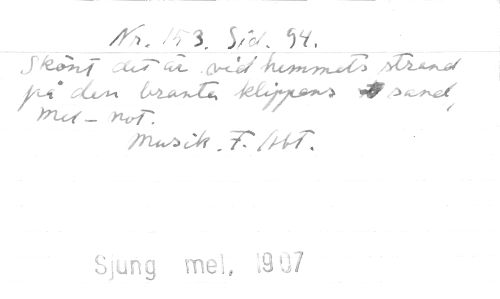 Nr. 153. Sid. 94.
Skönt det är vid hemmets strand
på den branta klippens sand,
mel-not.
Musik. F. Abt.
Sjung mel. 1907